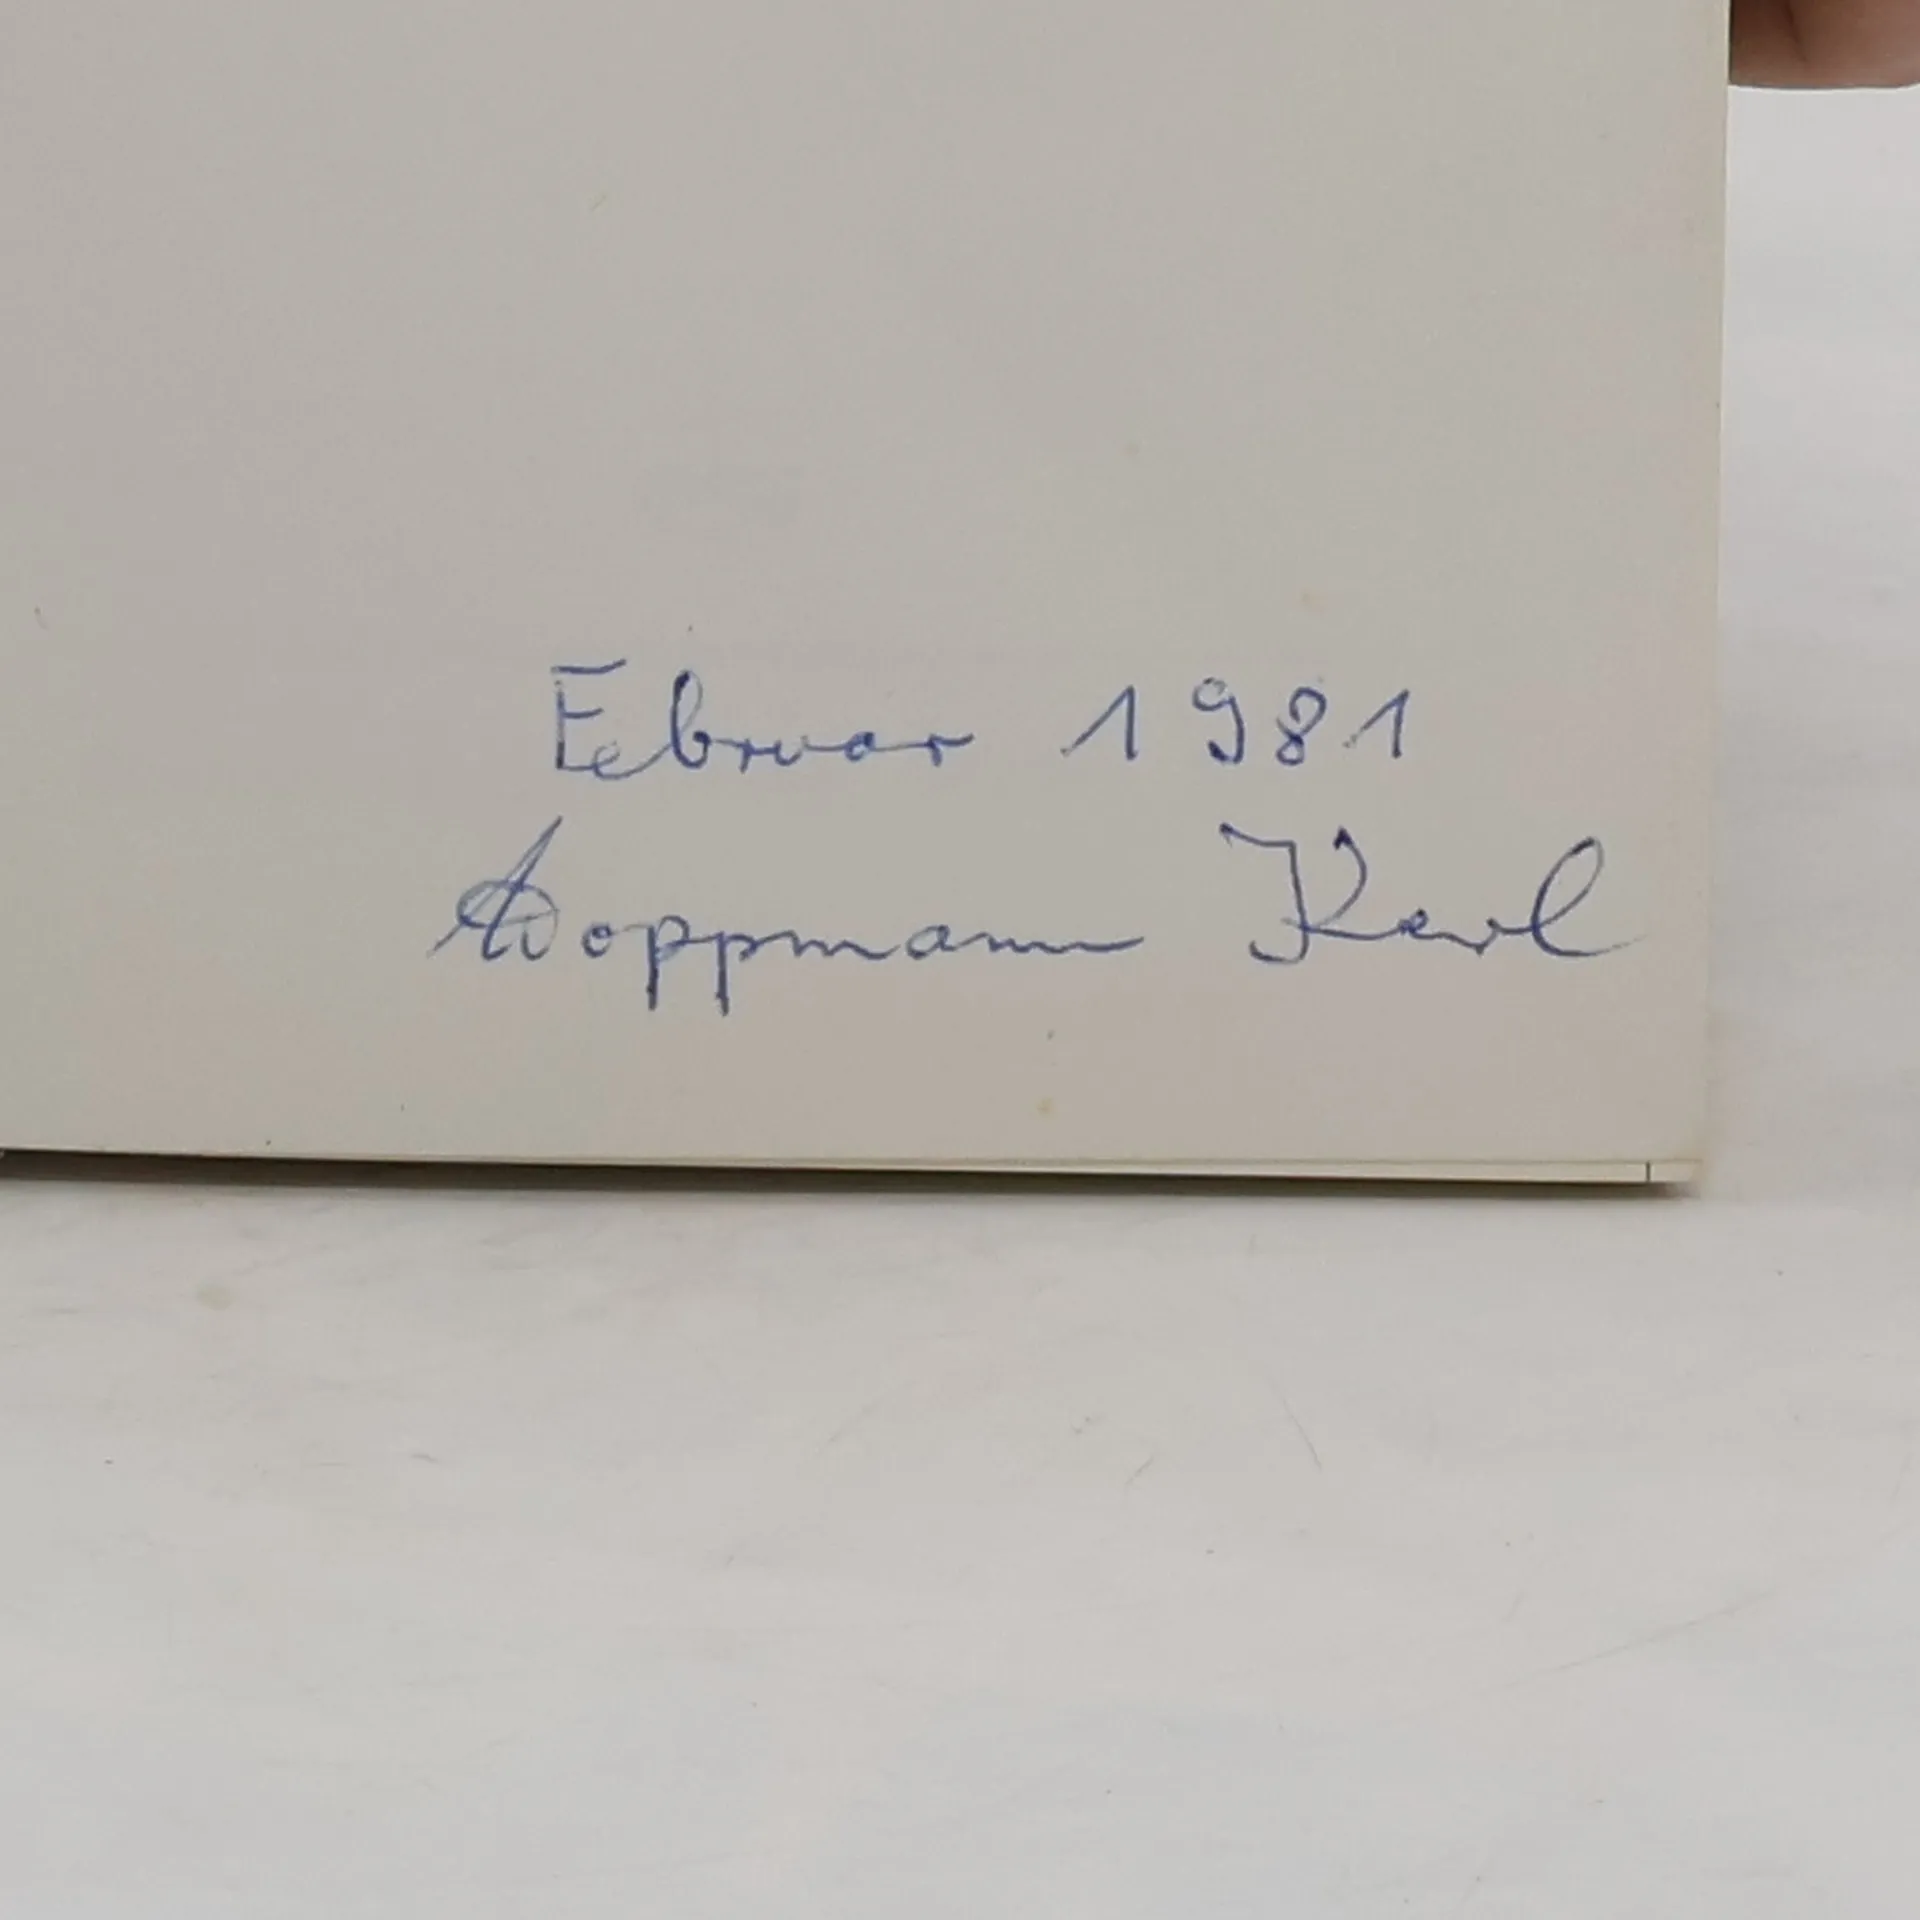 Februar 1981
Hoppmann Karl